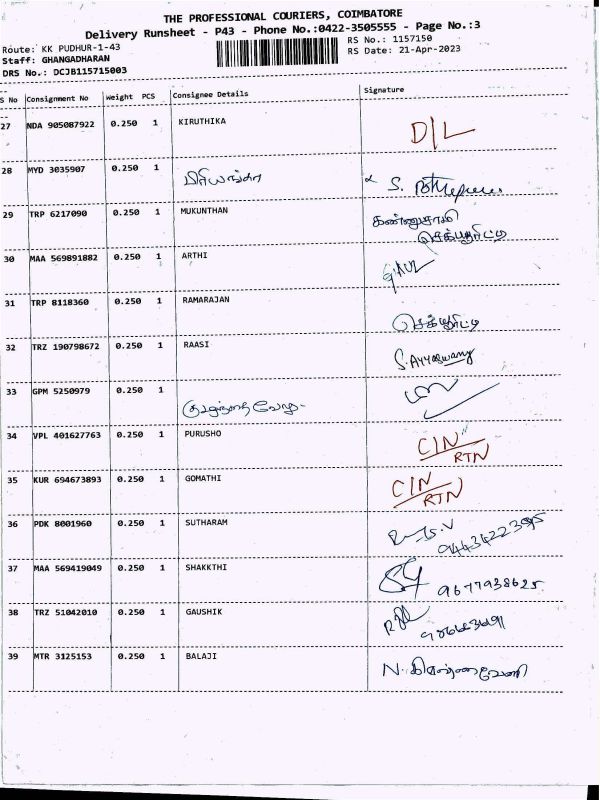 THE PROFESSIONAL COURIERS, COIMBATORE
Delivery Runsheet - P43 - Phone No.:0422-3505555 - Page No.:3
Route: KK PUDHUR-1-43
RS No.: 1157150
Staff: GHANGADHARAN
RS Date: 21-Apr-2023
DRS No.: DCJB115715003
S No Consignment No Weight PCS Consignee Details Signature
27 NDA 905087922 0.250 1 KIRUTHIKA D/L
28 MYD 3035907 0.250 1 பிரியங்கா S.
29 TRP 6217090 0.250 1 MUKUNTHAN கண்ணுசாமி
செக்யூரிட்டி
30 MAA 569891882 0.250 1 ARTHI
31 TRP 8118360 0.250 1 RAMARAJAN செக்யூரிட்டி
32 TRZ 190798672 0.250 1 RAASI S. Ayyaswamy
33 GPM 5250979 0.250 1 குழந்தைவேலு
34 VPL 401627763 0.250 1 PURUSHO CIN/RTN
35 KUR 694673893 0.250 1 GOMATHI CIN/RTN
36 PDK 8001960 0.250 1 SUTHARAM
37 MAA 569419049 0.250 1 SHAKKTHI 9677938625
38 TRZ 51042010 0.250 1 GAUSHIK
39 MTR 3125153 0.250 1 BALAJI N.